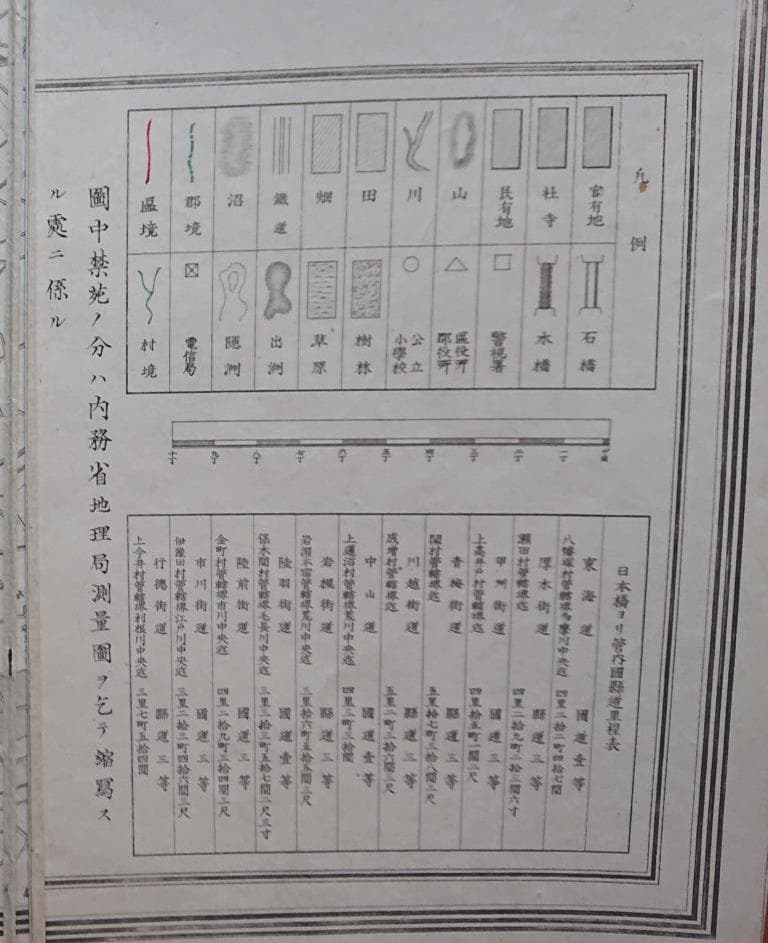 凡例
官有地
社寺
民有地
山
川
田
畑
鐵道
沼
郡境
區境
石橋
木橋
警視署
區役所
郡役所
公立
小學校
樹林
草原
出洲
隠洲
電信局
村境
十丁
九丁
八丁
七丁
六丁
五丁
四丁
三丁
二丁
一丁
日本橋ヨリ管内國縣道里程表
東海道 國道壹等
八幡塚村管轄堺多摩川中央迄 四里二拾二町四拾七間
厚木街道 縣道三等
瀬田村管轄堺迄 四里二拾九町二拾三間六寸
甲州街道 國道三等
上高井戸村管轄堺迄 四里拾五町一間二尺
青梅街道 縣道三等
関村管轄堺迄 五里拾七町三拾八間二尺
川越街道 縣道三等
成増村管轄堺迄 五里二町三拾六間二尺
中山道 國道壹等
上蓮沼村管轄堺荒川中央迄 四里二町三拾間
岩槻街道 縣道三等
岩淵本宿管轄堺荒川中央迄 三里拾六町五拾五間三尺
陸羽街道 國道壹等
保木間村管轄堺毛長川中央迄 三里三拾三町五拾七間二尺三寸
陸前街道 國道三等
金町村管轄堺市川中央迄 四里二拾九町三拾四間二尺
市川街道 國道三等
伊豫田村管轄堺江戸川中央迄 三里二拾三町四拾六間三尺
行徳街道 縣道三等
上今井村管轄堺利根川中央迄 三里七町五拾四間
圖中禁苑ノ分ハ内務省地理局測量圖ヲ乞テ縮寫ス
ル處ニ係ル